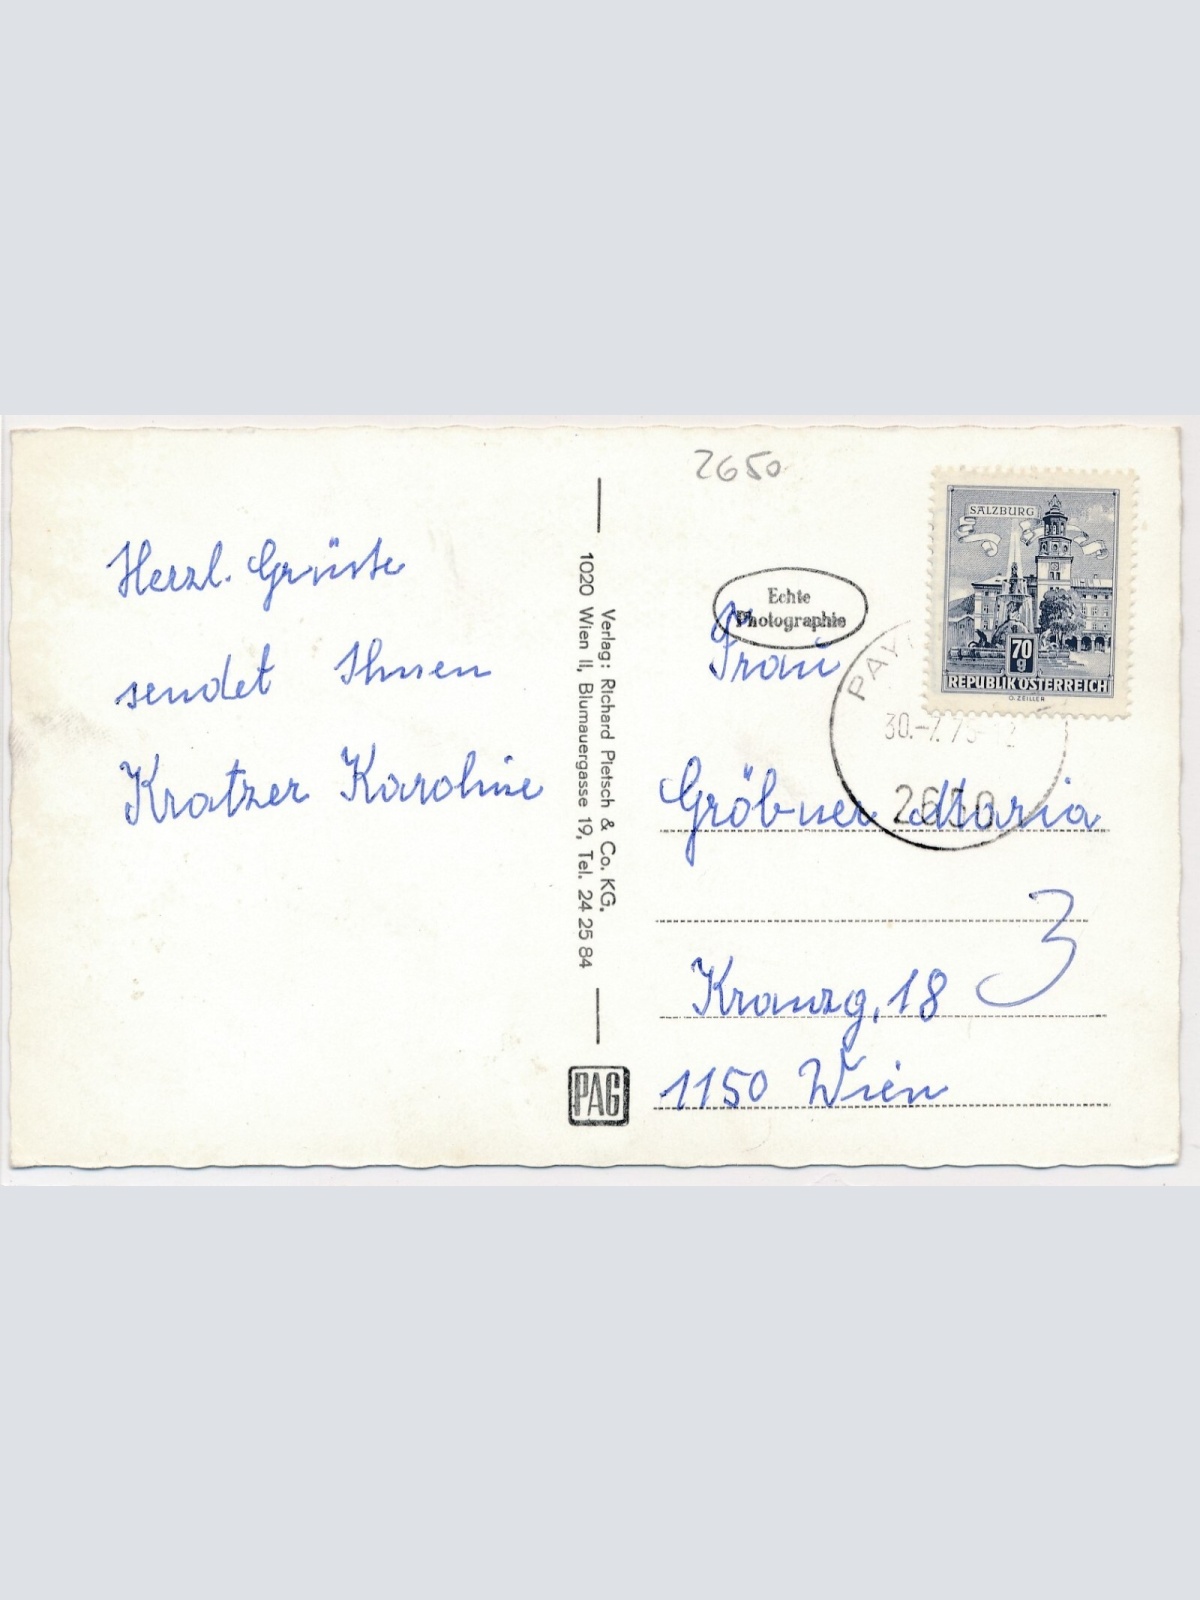 2650
Herzl. Grüsse
sendet Ihnen
Kratzer Karoline
Verlag: Richard Pietsch & Co. KG,
1020 Wien II, Blumauergasse 19, Tel. 24 25 84
PAG
Echte
Photographie
SALZBURG
70
g
REPUBLIK ÖSTERREICH
O. ZEILLER
PAY
30.-7.75-12
2650
Frau
Gröbner Maria
3
Kranzg. 18
1150 Wien